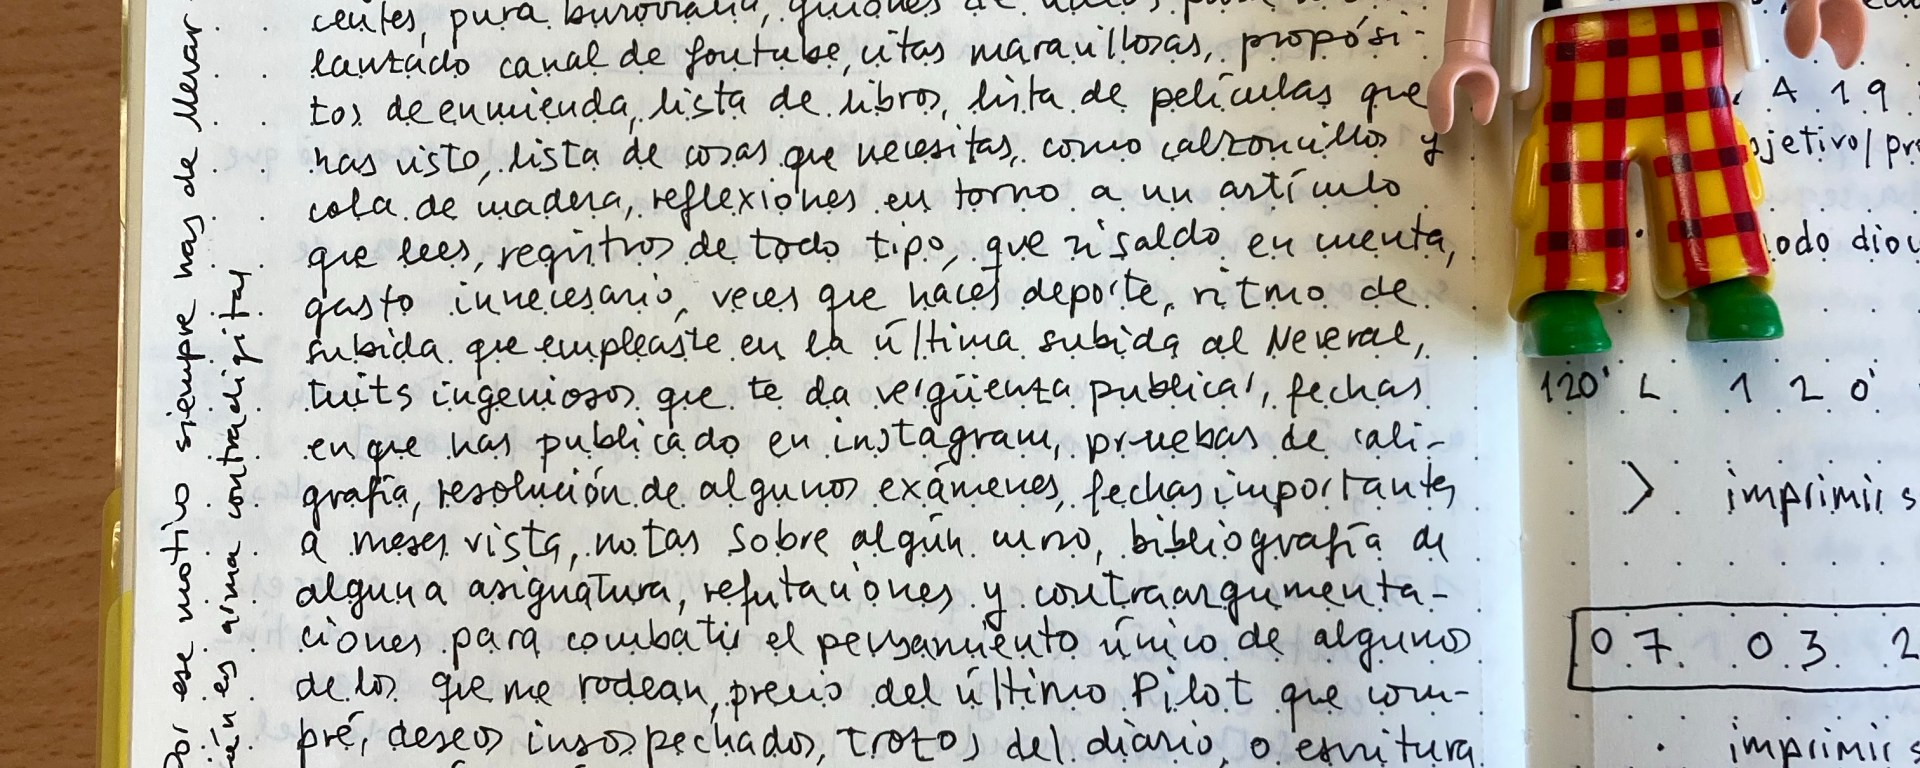 centes, pura burocracia, guiones de
lanzado canal de Youtube, citas maravillosas, propósi-
tos de enmienda, lista de libros, lista de películas que
has visto, lista de cosas que necesitas, como calzoncillos y
cola de madera, reflexiones en torno a un artículo
que lees, registros de todo tipo, que si saldo en cuenta,
gasto innecesario, veces que haces deporte, ritmo de
subida que empleaste en la última subida al Neveral,
tuits ingeniosos que te da vergüenza publicar, fechas
en que has publicado en instagram, pruebas de cali-
grafía, resolución de algunos exámenes, fechas importantes
a meses vista, notas sobre algún curso, bibliografía de
alguna asignatura, refutaciones y contraargumenta-
ciones para combatir el pensamiento único de algunos
de los que me rodean, precio del último Pilot que com-
pré, deseos insospechados, trozos del diario, o escritura
Por ese motivo siempre has de llevar
es arma contradigital
A 1 9
objetivo/pr
odo
120' L 1 2 0'
> imprimir s
07. 03. 2
· imprimir s